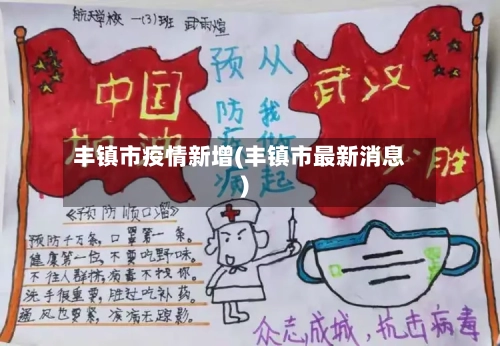 航天学校 一(3)班
中国
预防
从我
武汉
胜
丰镇市疫情新增(丰镇市最新消息
)
病
起
《预防顺口溜》
预防千万条,口罩第一条。
健康第一位,不要吃野味。
不往人群挤,病毒不找你。
洗手很重要,胜过吃补药。
通风也要紧,
众志成城,抗击病毒